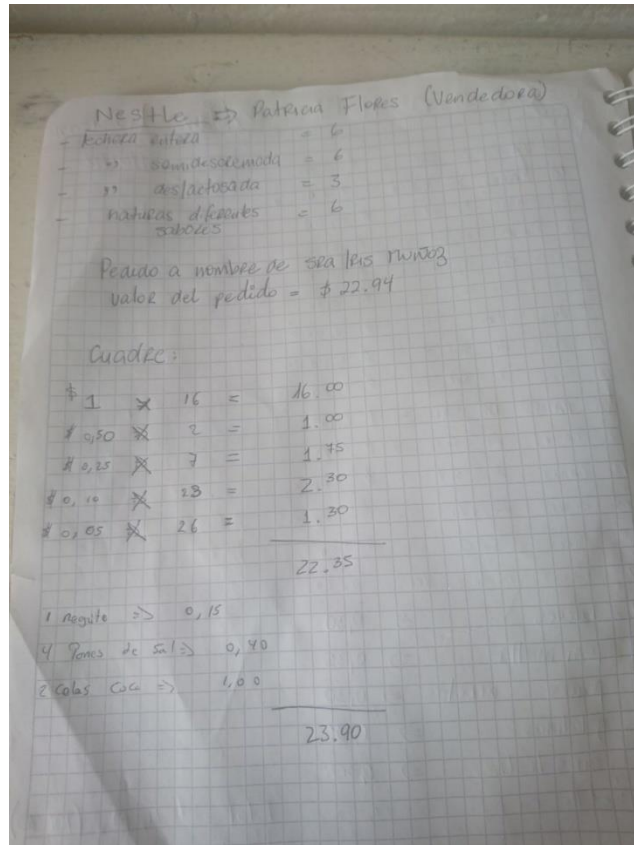 Nestle => Patricia Flores (Vendedora)
- lechera entera = 6
- " semidescremada = 6
- " deslactosada = 3
- naturas diferentes = 6
sabores
Pedido a nombre de sra Iris muñoz
valor del pedido = $22.94
Cuadre:
$ 1 x 16 = 16.00
$ 0,50 x 2 = 1.00
$ 0,25 x 7 = 1.75
$ 0,10 x 23 = 2.30
$ 0,05 x 26 = 1.30
22.35
1 negrito => 0,15
4 Panes de sal => 0,40
2 colas coca => 1,00
23.90